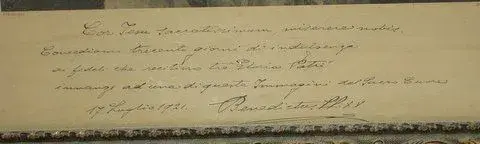 Cor Jesu sacratissimum, miserere nobis.
Concediamo trecento giorni di indulgenza
ai fedeli che recitano tre "Gloria Patri"
innanzi ad una di queste Immagini del Sacro Cuore
17 Luglio 1921. Benedictus PP. XV